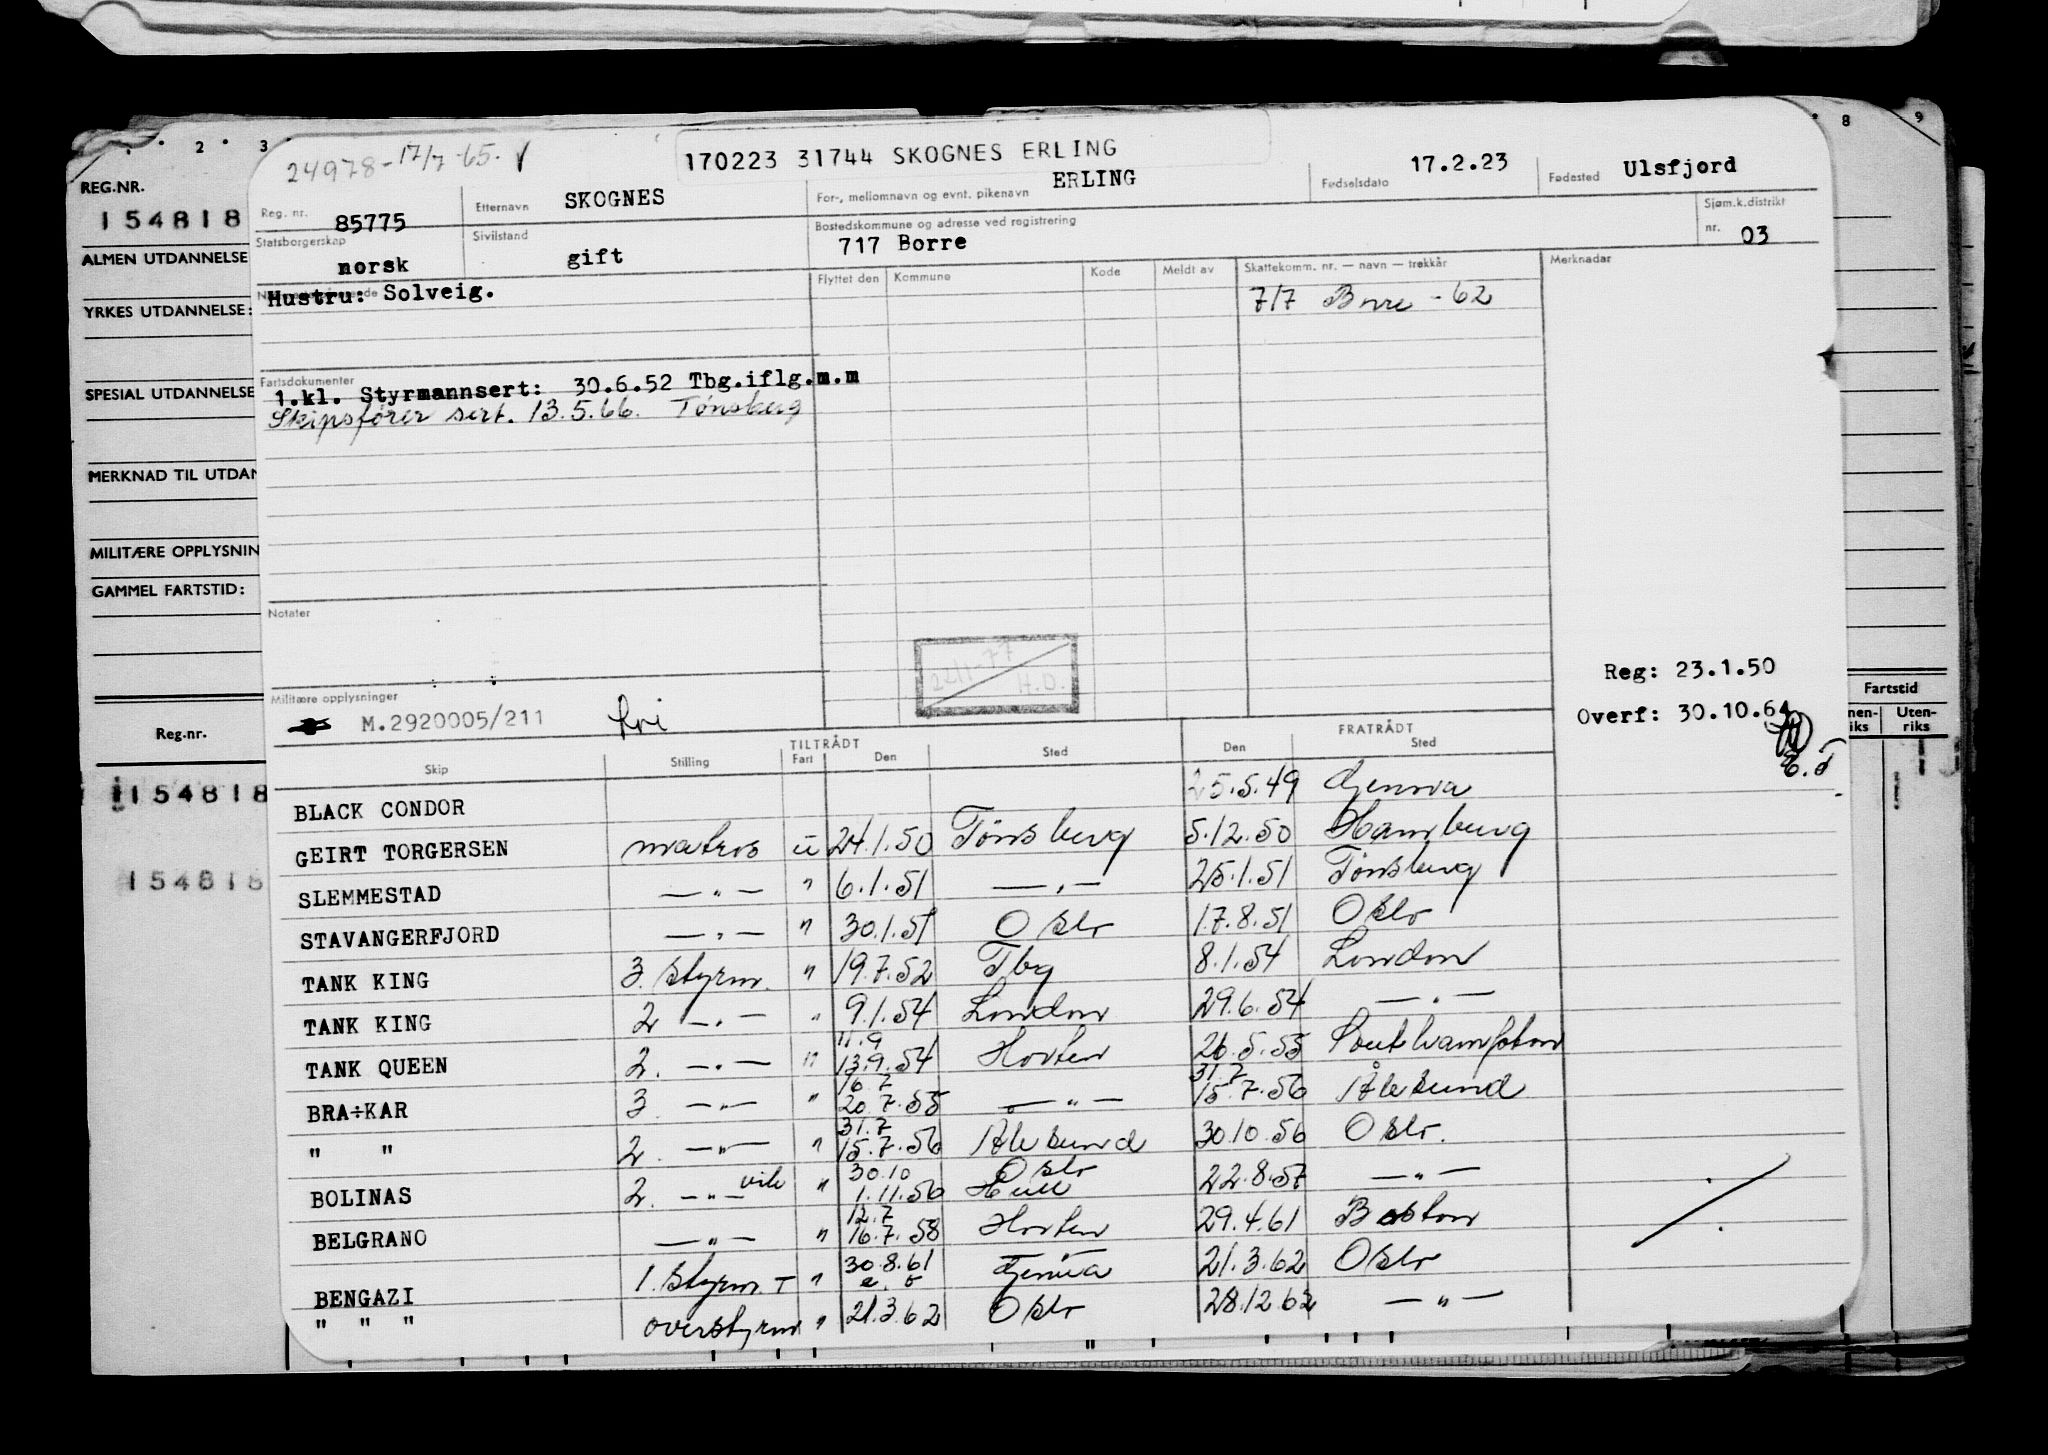 8 9
· 2 · 3
24978-17/7-65. √
170223 31744 SKOGNES ERLING
REG.NR.
154818
Reg. nr. 85775
Etternavn SKOGNES
For-, mellomnavn og evnt. pikenavn ERLING
Fødselsdato 17.2.23
Fødested Ulsfjord
Statsborgerskap norsk
Sivilstand gift
Bostedskommune og adresse ved registrering
717 Borre
Sjøm.k.distrikt nr. 03
ALMEN UTDANNELSE
Hustru: Solveig.
Flyttet den Kommune Kode Meldt av Skattekomm. nr. — navn — trekkår Merknader
717 Borre - 62
YRKES UTDANNELSE:
Fartsdokumenter
1.kl. Styrmannsert: 30.6.52 Tbg.iflg.m.m
Skipsfører sert. 13.5.66. Tønsberg
SPESIAL UTDANNELSE
MERKNAD TIL UTDAN
MILITÆRE OPPLYSNIN
GAMMEL FARTSTID:
Notater
22/1-77 H.O.
Reg: 23.1.50
Overf: 30.10.64
E.T
Militære opplysninger
M.2920005/211
Fartstid
nen-riks Uten-riks
Reg.nr.
154818
154818
TILTRÅDT FRATRÅDT
Skip Stilling Fart Den Sted Den Sted
BLACK CONDOR 25.5.49 Genova
GEIRT TORGERSEN matros u 24.1.50 Tønsberg 5.12.50 Hamburg
SLEMMESTAD — " — " 6.1.51 — " — 25.1.51 Tønsberg
STAVANGERFJORD — " — " 30.1.51 Oslo 17.8.51 Oslo
TANK KING 3. styrm. " 19.7.52 Tbg 8.1.54 London
TANK KING 2 — " — " 9.1.54 London 29.6.54 — " —
TANK QUEEN 2. — " — " 11.9 13.9.54 Horten 26.5.55 Southampton
BRA÷KAR 3. — " — " 16.7 20.7.55 — " — 31.7 15.7.56 Ålesund
" " 2. — " — " 31.7 15.7.56 Ålesund 30.10.56 Oslo.
BOLINAS 2. — " — vik " 30.10 1.11.56 Oslo Hull 22.8.57 — " —
BELGRANO — " — " 12.7 16.7.58 Horten 29.4.61 Boston
BENGAZI 1. styrm. T " 30.8.61 Genua 21.3.62 Oslo
" " " overstyrm " 21.3.62 Oslo 28.12.62 — " —